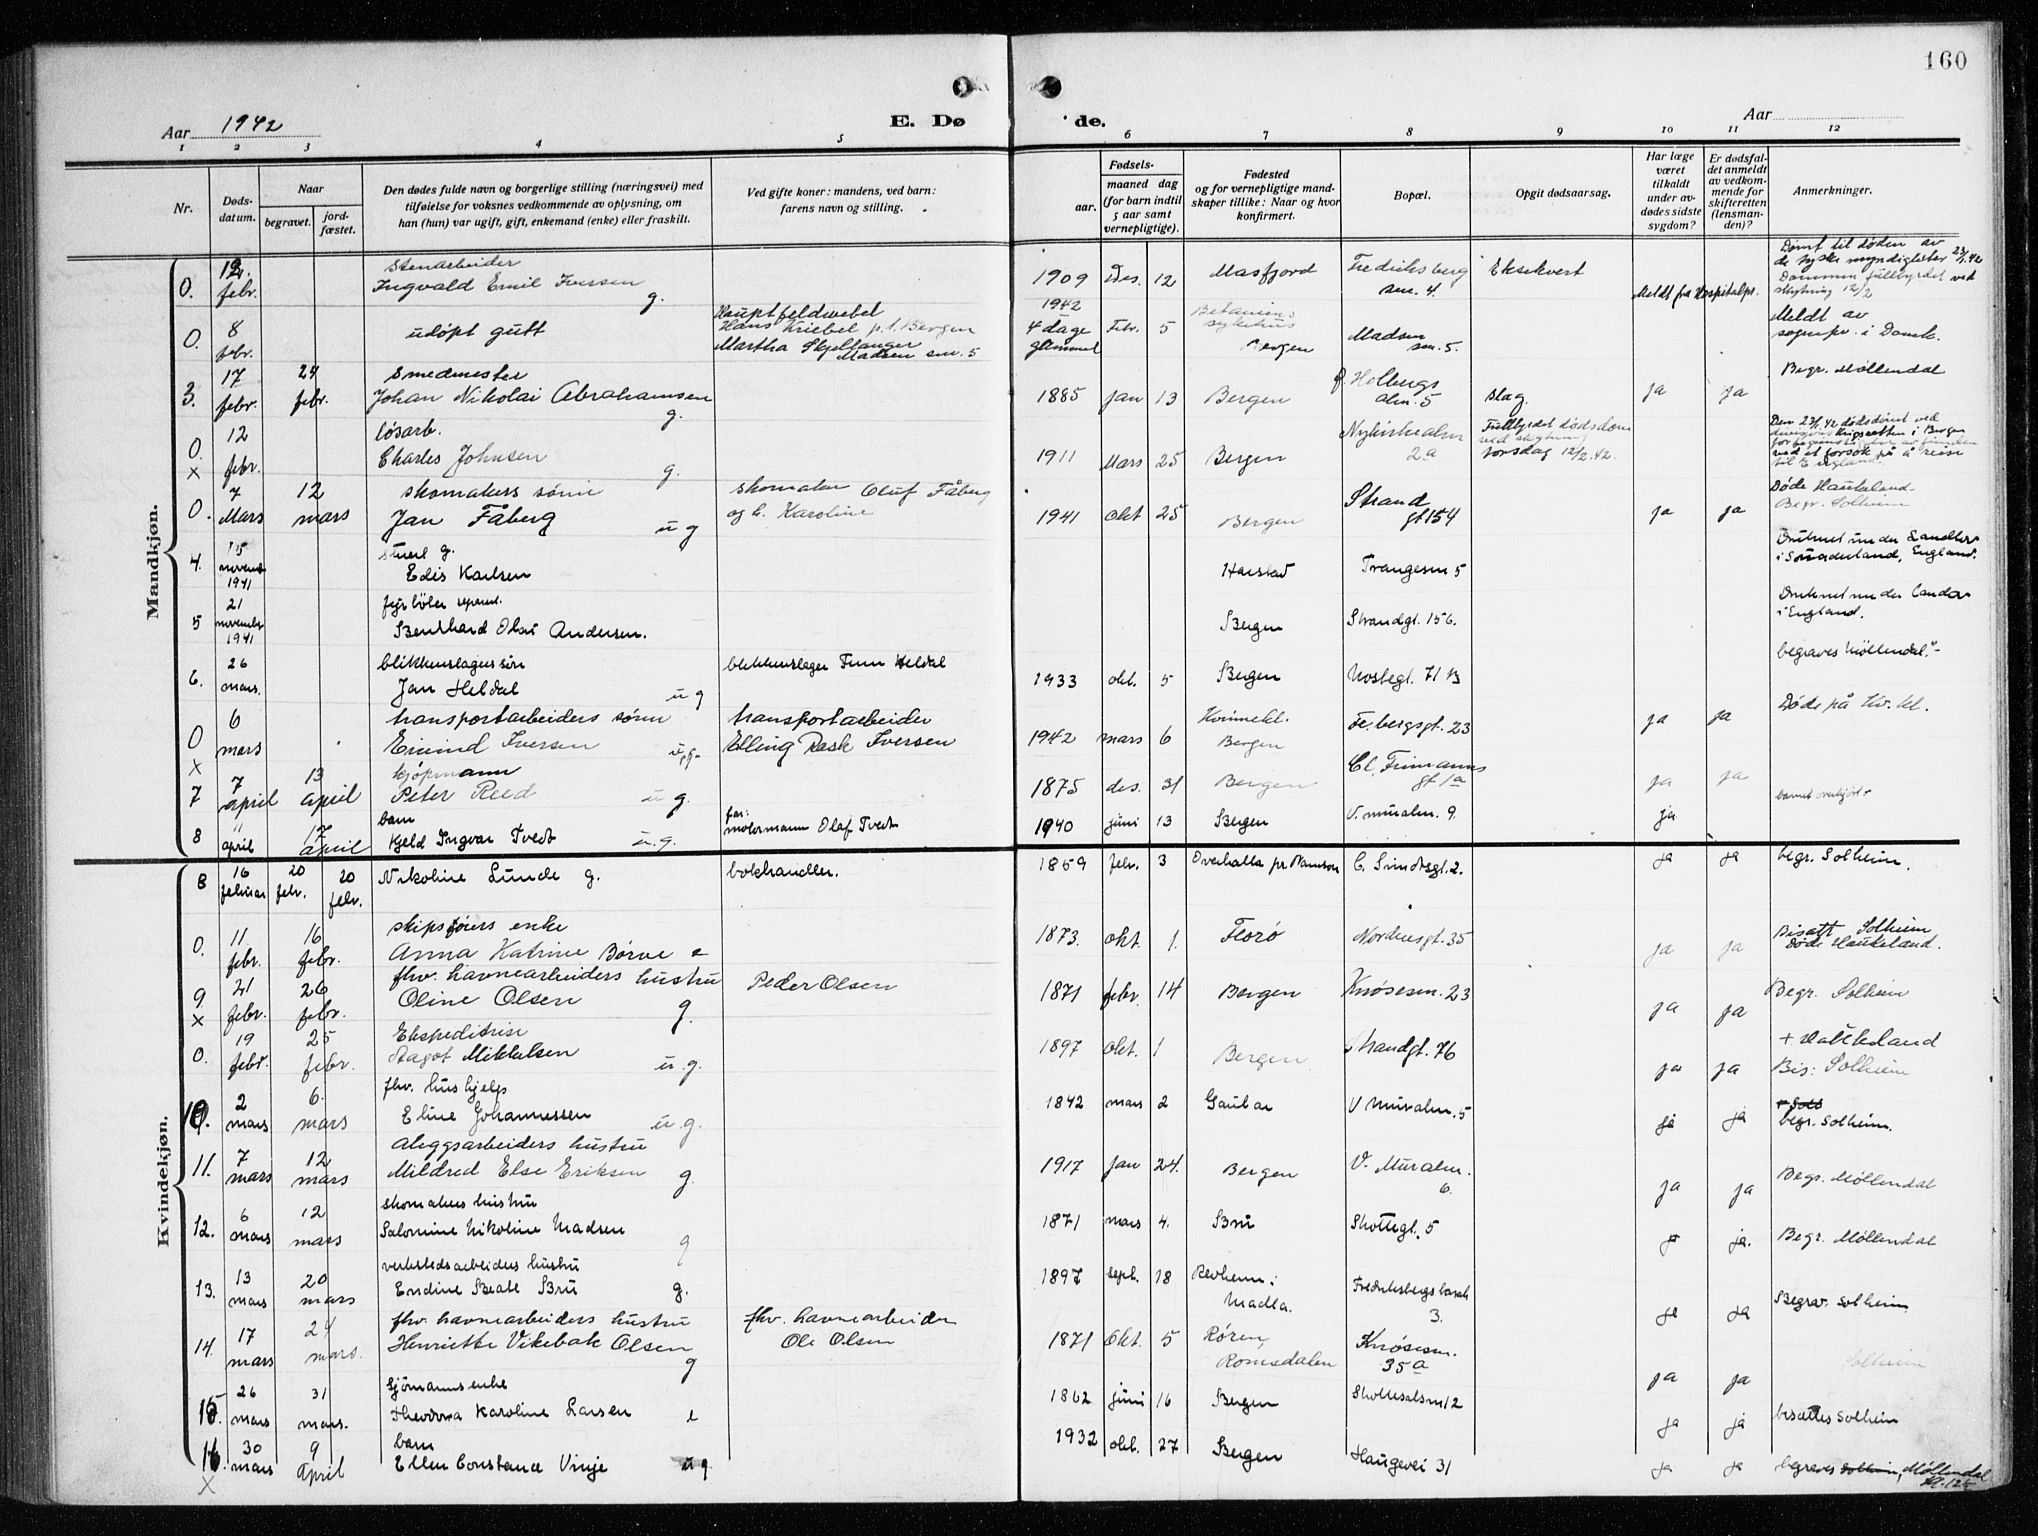 160
Aar 1942
E. Dø
de.
Aar
1 2 3 4 5 6 7 8 9 10 11 12
Nr.
Døds-
datum.
Naar
begravet.
jord-
fæstet.
Den dødes fulde navn og borgerlige stilling (næringsvei) med
tilføielse for voksnes vedkommende av oplysning, om
han (hun) var ugift, gift, enkemand (enke) eller fraskilt.
Ved gifte koner: mandens, ved barn:
farens navn og stilling.
Fødsels-
aar.
maaned dag
(for barn indtil
5 aar samt
vernepligtige).
Fødested
og for vernepligtige mand-
skaper tillike: Naar og hvor
konfirmert.
Bopæl.
Opgit dødsaarsag.
Har læge
været
tilkaldt
under av-
dødes sidste
sygdom?
Er dødsfal-
det anmeldt
av vedkom-
mende for
skifteretten
(lensman-
den)?
Anmerkninger.
Mandkjøn.
0. 12 febr.
stenarbeider
Ingvald Emil Iversen g.
1909 Des. 12 Masfjord Fredriksberg sm. 4. Eksekvert
Meldt fra Hospitalpr.
Dømt til døden av
de tyske myndigheter 23/1.42
Dommen fullbyrdet ved
skytning 12/2
0. 8 febr.
udøpt gutt
Hauptfeldwebel
Hans Kriebel p.t. Bergen
Martha Skjellanger
Madsen sm. 5
1942
4 dage
gammel
Febr. 5
Betanien
sykehus
Bergen
Madsen
sm. 5.
Meldt av
sognepr. i Domk.
3. 17 febr. 24 febr.
smedmester
Johan Nikolai Abrahamsen g.
1885 jan 13 Bergen
Holbergs
alm. 5
slag. ja ja
Begr. Møllendal
0. x 12 febr.
løsarb.
Charles Johnsen g.
1911 Mars 25 Bergen
Nykirkealm
2a
Fullbyrdet dødsdom
ved skytning
torsdag 12/2.42.
Den 23/1.42 dødsdømt ved
krigsretten i Bergen
for
ved et forsøk på å reise
til England.
0. 7 Mars 12 mars
skomakers sønn
Jan Fåberg u g
skomaker Oluf Fåberg
og h. Karoline
1941 okt 25 Bergen
Strand
gt 154
ja ja
Døde Haukeland.
Begr. Solheim
4. 15 novemb 1941
stuert g.
Edis Karlsen
Harstad Trangesm 5
Druknet under
i Sunderland, England.
5 21 november 1941
fyrbøter
Bernhard Olai Andersen.
Bergen Strandgt. 156.
Druknet under
i England.
6. 26 mars.
blikkenslagers sønn
Jan Heldal u g
blikkenslager Finn Heldal
1933 okt. 5 Bergen Nostegt. 71 B
begraves Møllendal.
0 x 6 mars
transportarbeiders sønn
Eivind Iversen u.g.
transportarbeider
Elling Rask Iversen
1942 mars 6
Kvinnekl.
Bergen
Fr. bergsgt. 23 ja ja
Døde på Kv. kl.
7 7 april 13 april
kjøpmann
Peter Reed u g.
1875 des. 31 Bergen
Cl. Frimanns
gt 1a
ja ja
8 11 april 17 april
barn
Kjeld Ingvar Tvedt u.g.
far:
motormann Olaf Tvedt
1940 juni 13 Bergen V. muralm. 9. ja
barnet overkjørt
Kvindekjøn.
8 16 februar 20 febr. 20 febr.
Nikoline Lunde g. bokhandler.
1859 febr. 3 Overhalla pr Namsos C. Sundtsgt. 2. ja ja begr. Solheim.
0. 11 febr. 16 febr.
skipsføiers enke
Anna Katrine Børve e
1873. okt. 1. Florø Nordnesgt. 35 ja ja
Bisatt Solheim
Døde Haukeland.
9 x 21 febr. 26 febr.
fhv. havnearbeiders hustru
Oline Olsen g.
Peder Olsen
1871 febr. 14 Bergen Knøsesm. 23 ja ja
Begr. Solheim
0. 19 febr. 25 febr.
Ekspeditrise
Dagot Mikkelsen u.g.
1897 Okt. 1 Bergen Strandgt. 76 ja ja
+ Haukeland
Bis: Solheim
10. 2 mars 6. mars
fhv. hushjelp
Eline Johannessen u.g.
1842 mars 2 Gaular V Muralm. 5 ja ja
begr. Solheim.
11. 7 mars 12 mars
Anleggsarbeiders hustru
Mildred Else Eriksen g.
1917 jan 24. Bergen
V. Muralm.
6.
ja ja
Begr. Møllendal
12. 6 mars 12 mars
skomakers hustru
Salomine Nikoline Madsen g
1871 mars 4. Bru Skottegt. 5 ja ja.
Begr. Møllendal
13. 13 mars 20 mars
verkstedsarbeiders hustru
Endine Beate Bru g.
1897 sept. 18
Revheim i
Madla.
Fredriksbergsbarak
3.
ja ja
Begrav. Solheim
14. 17 mars 24 mars.
fhv. havnearbeiders hustru
Henriette Vikebak Olsen g
fhv. havnearbeider
Ole Olsen
1871 Okt. 5
Røren
Romsdalen
Knøsesm.
35a
ja ja
Solheim
15 26 mars 31 mars.
Sjømanns enke
Theodora Karoline Larsen e
1862 juni 16 Bergen Skottesalsm 12 ja ja
bisettes Solheim
16. x 30 mars 9 april
barn
Ellen Constance Vinje u g
1932 okt. 27 Bergen Haugevei 31 ja ja
begraves Solheim, Møllendal
kl. 12